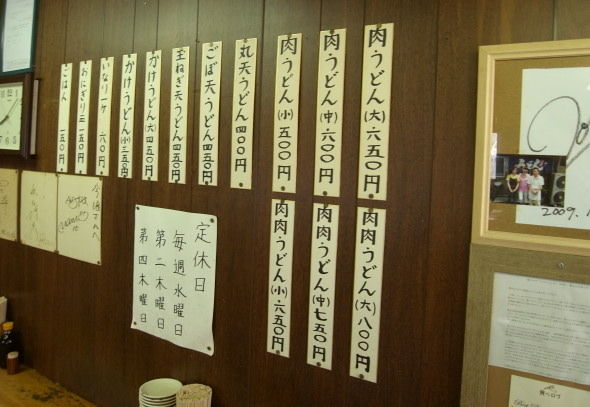 肉うどん(大)六五〇円
肉うどん(中)六〇〇円
肉うどん(小)五〇〇円
丸天うどん四〇〇円
ごぼ天うどん四五〇円
玉ねぎ天うどん四五〇円
かけうどん(大)四五〇円
かけうどん(小)三五〇円
いなり一ヶ 六〇円
おにぎり三 一五〇円
ごはん 一五〇円
肉肉うどん(大)八〇〇円
肉肉うどん(中)七五〇円
肉肉うどん(小)六五〇円
定休日
毎週水曜日
第二木曜日
第四木曜日
2009.